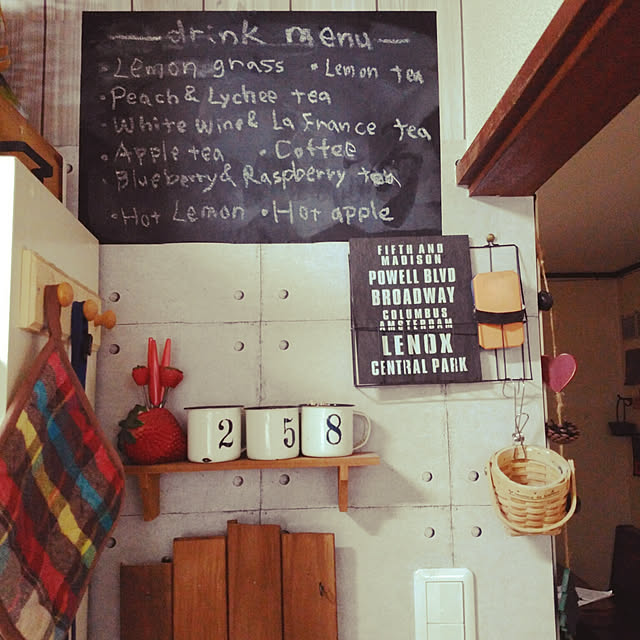 drink menu
· Lemon grass · Lemon tea
· Peach & Lychee tea
· White wine & La France tea
· Apple tea · Coffee
· Blueberry & Raspberry tea
· Hot Lemon · Hot apple
FIFTH AND
MADISON
POWELL BLVD
BROADWAY
COLUMBUS
AMSTERDAM
LENOX
CENTRAL PARK
2 5 8